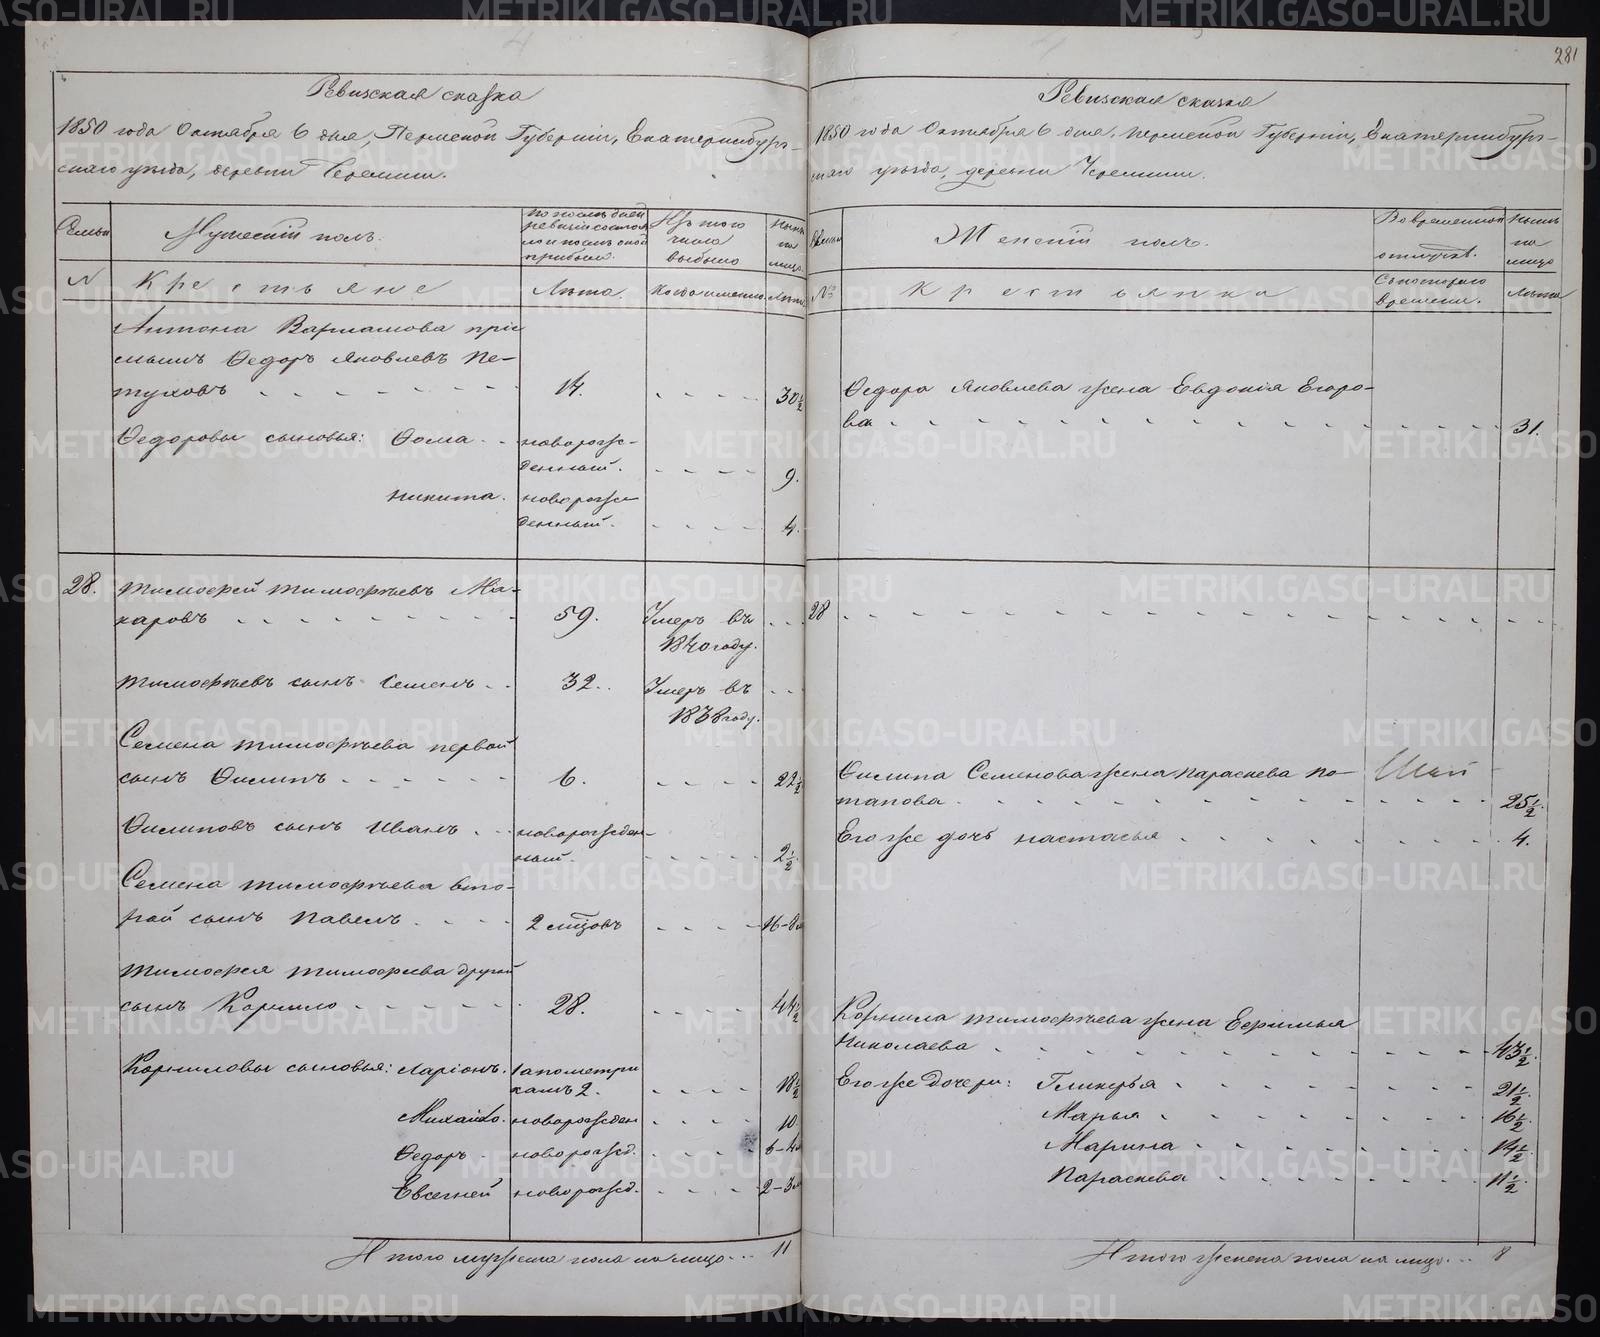 281
Ревизская сказка
1850 года Октября 6 дня, Пермской Губернии, Екатеринбург-
скаго уѣзда, деревни Черемши.
Семьи
Мужескій полъ.
По послѣдней
ревизіи состоя
ло и послѣ оной
прибыло
Изъ того
числа
выбыло
Нынѣ
на
лицо
N
Крестьяне
Лѣта.
Когда именно.
Лѣта
Антона Варламова пріе
мышъ Ѳедоръ Яковлевъ Пе-
туховъ
14.
30 1/2
Ѳедоровы сыновья: Ѳома
новорож-
денный.
9.
Никита.
новорож
денный.
4.
28.
Тимоѳей Тимоѳѣевъ Ма-
каровъ
59.
Умеръ въ
1840 году.
Тимоѳѣевъ сынъ Семенъ
32.
Умеръ въ
1838 году.
Семена Тимоѳѣева первой
сынъ Филипъ
6.
22 1/2
Филиповъ сынъ Иванъ
новорожден-
ный.
2 1/2
Семена Тимоѳѣева вто-
рой сынъ Павелъ
2 мѣсяцовъ
16-8м
Тимоѳея Тимоѳеева другой
сынъ Корнило
28.
44 1/2
Корниловы сыновья: Ларіонъ.
а по метри
камъ 2.
18 1/2
Михайло.
новорожден
10.
Ѳедоръ
новорожд.
6-4м
Евсегней
новорожд.
2-3м
Итого мужеска пола на лицо
11
Ревизская сказка
1850 года Октября 6 дня, Пермской Губерніи, Екатеринбург-
скаго уѣзда, деревни Черемши.
Семьи
Женскій полъ.
Во временной
отлучкѣ.
Нынѣ
на
лицо
№
Крестьянка
Съ котораго
времени.
Лѣта
Ѳедора Яковлева жена Евдокія Егоро-
ва
31.
28
Филипа Семенова жена Параскева По-
тапова
25 1/2.
Его же дочь Настасья
4.
Корнила Тимоѳѣева жена Ефимья
Николаева
43 1/2.
Его же дочери: Гликерья
21 1/2.
Марья
16 1/2
Марина
14 1/2.
Параскева
11 1/2.
Итого женска пола на лицо
8
METRIKI.GASO-URAL.RU